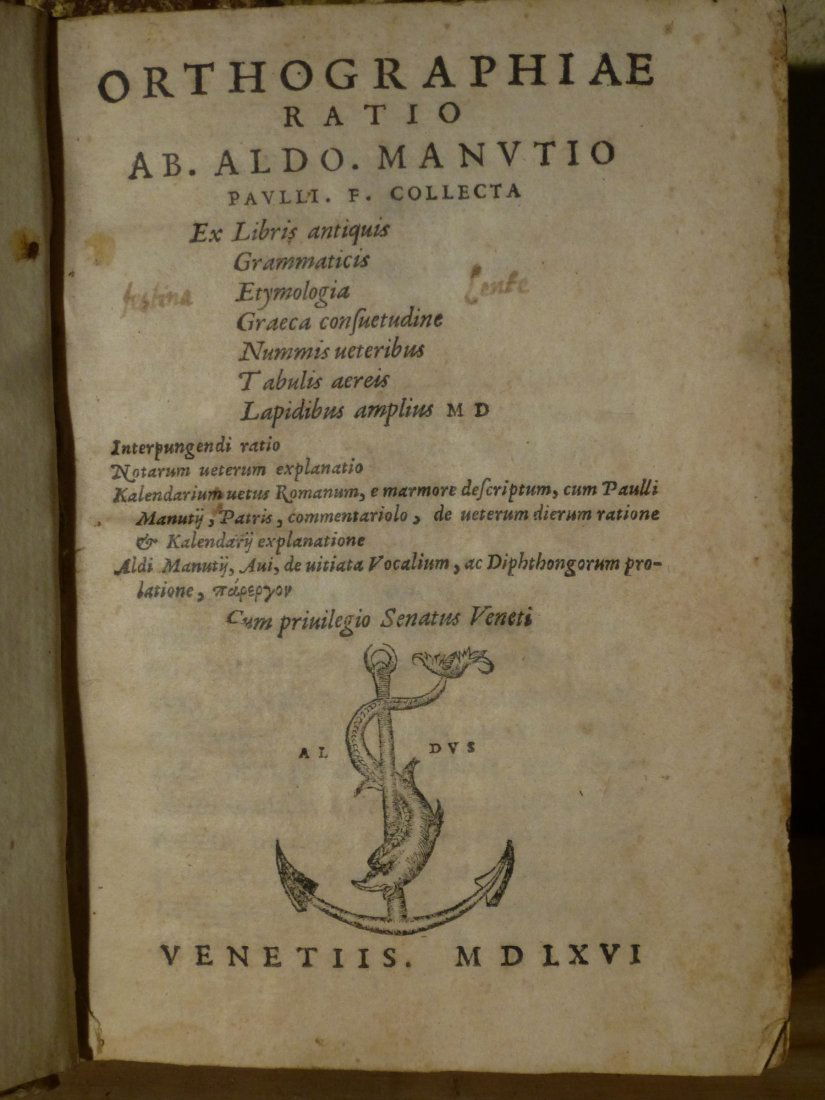 ORTHOGRAPHIAE
RATIO
AB. ALDO. MANVTIO
PAVLLI. F. COLLECTA
Ex Libris antiquis
Grammaticis
festina Etymologia Lente
Graeca conſuetudine
Nummis ueteribus
Tabulis aereis
Lapidibus amplius M D
Interpungendi ratio
Notarum ueterum explanatio
Kalendarium uetus Romanum, e marmore deſcriptum, cum Paulli
Manutij, Patris, commentariolo, de ueterum dierum ratione
& Kalendarij explanatione
Aldi Manutij, Aui, de uitiata Vocalium, ac Diphthongorum pro-
latione, πάρεργον
Cum priuilegio Senatus Veneti
AL DVS
VENETIIS. M D LXVI